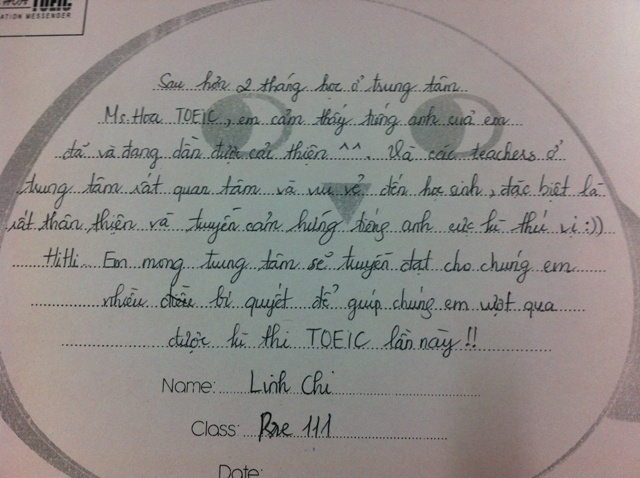 TOEIC
ATION MESSENGER
Sau hơn 2 tháng học ở trung tâm
Ms. Hoa TOEIC, em cảm thấy tiếng anh của em
đã và đang dần được cải thiện ^^. Và các teachers ở
trung tâm rất quan tâm và vui vẻ đến học sinh, đặc biệt là
rất thân thiện và truyền cảm hứng tiếng anh cực kì thú vị :))
HiHi. Em mong trung tâm sẽ truyền đạt cho chúng em
nhiều điều bí quyết để giúp chúng em vượt qua
được kì thi TOEIC lần này!!
Name: Linh Chi
Class: Pre 111
Date: